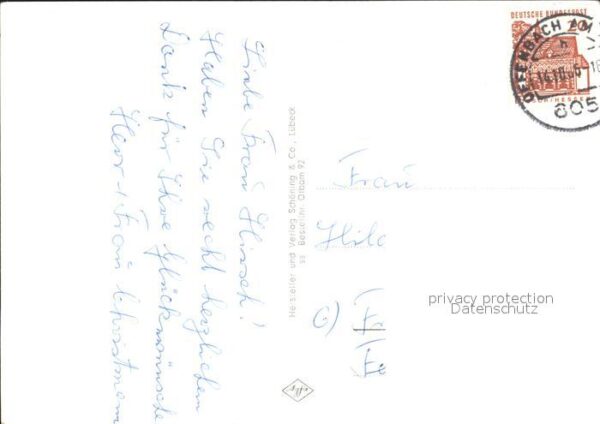 Liebe Frau Hirsch!
Haben Sie recht herzlichen
Dank für Ihre Glückwünsche
Herr + Frau
Hersteller und Verlag Schöning & Co., Lübeck
Bestellnr. Orbam 92
Frau
Hild
DEUTSCHE BUNDESPOST
20
OFFENBACH AM
605
privacy protection
Datenschutz